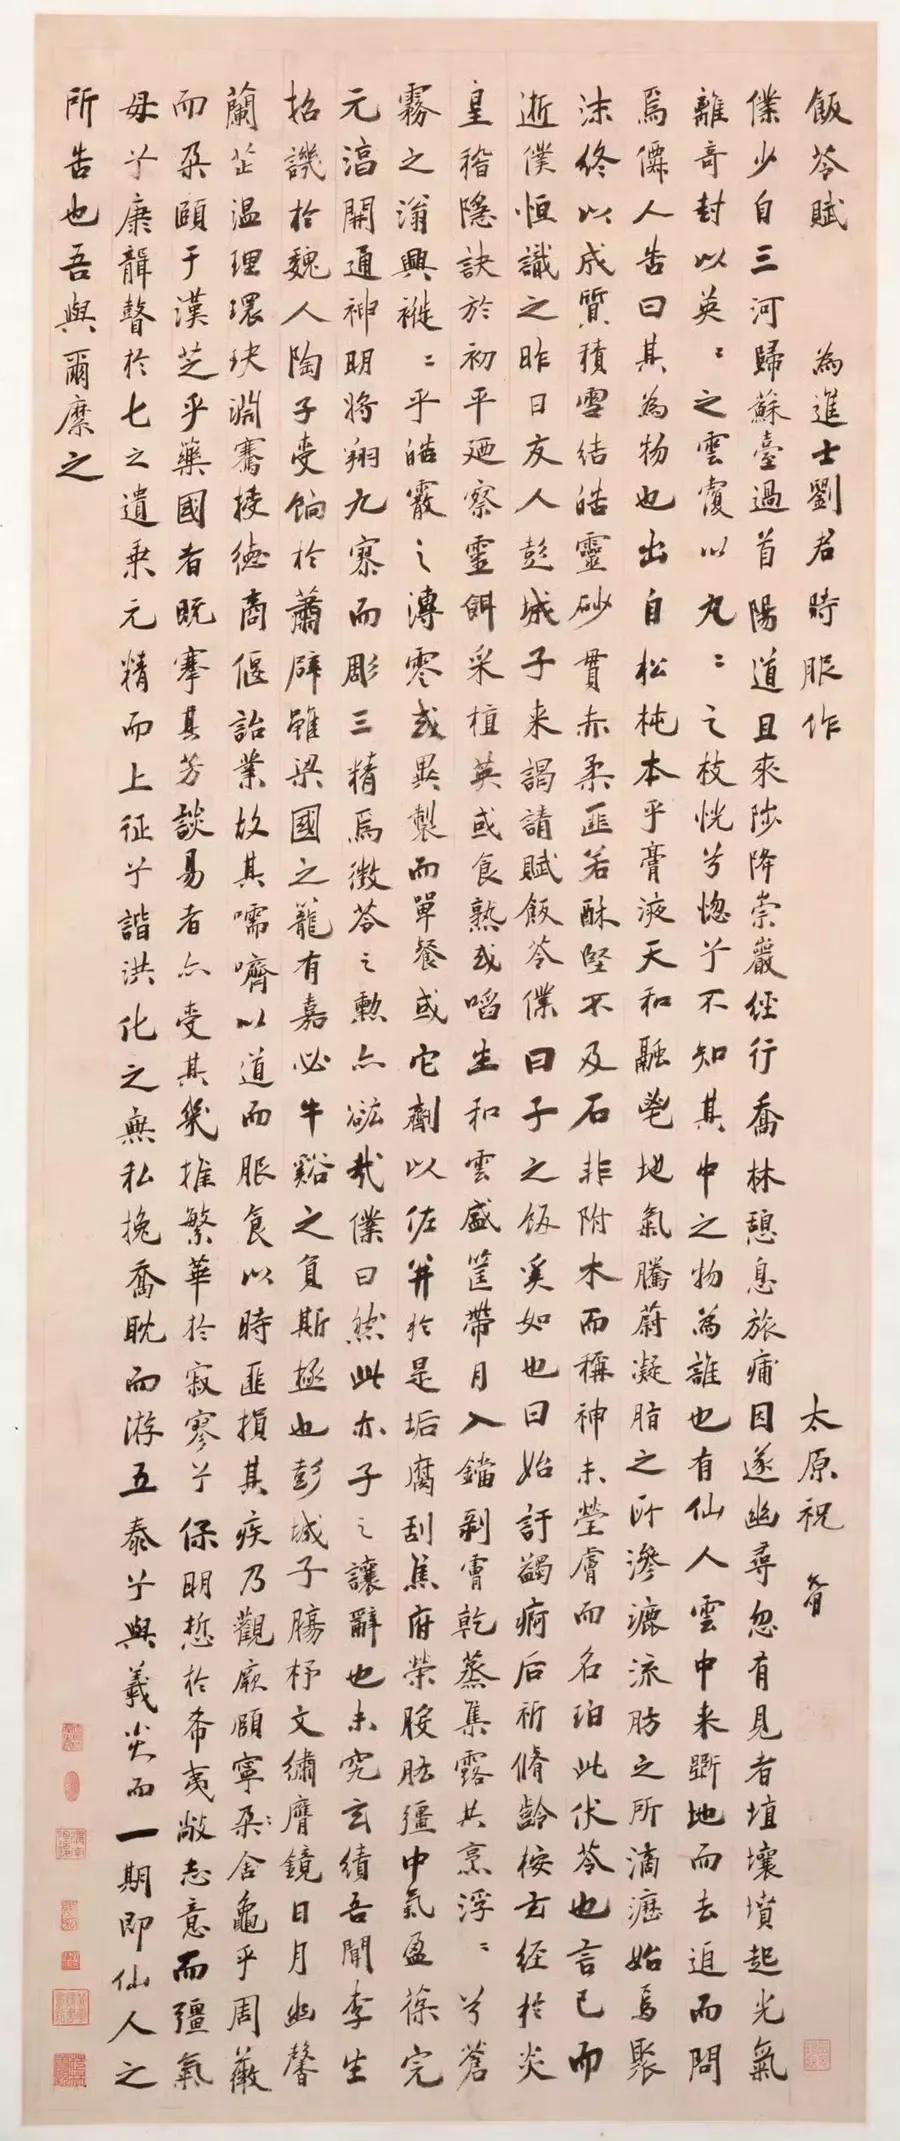 飯苓賦 為進士劉君時服作 太原祝
僕少自三河歸蘇臺過首陽道且來陟降崇巖經行喬林憩息旅痡因遂幽尋忽有見者埴壤墳起光氣
離奇封以英〻之雲覆以丸〻之枝恍兮惚兮不知其中之物為誰也有仙人雲中来斲地而去迫而問
焉僊人告曰其為物也出自松杶本乎膏液天和融鬯地氣騰蔚凝脂之所滲漉流肪之所滴瀝始焉聚
沫終以成質積雪結皓靈砂貫赤柔匪若酥堅不及石非附木而稱神未瑩膚而名珀此伏苓也言已而
逝僕恒識之昨日友人彭城子来謁請賦飯苓僕曰子之飯奚如也曰始訏蠲痾后祈脩齡桉古经於炎
皇稽隱訣於初平廼察靈餌采植英或食熟或啗生和雲盛筐帶月入鐺剥膚乾蒸集露共烹浮〻兮蒼
霧之滃興褷〻乎皓霰之漙零或異製而單餐或它劑以佐并於是垢腐刮焦府榮胺胳彊中氣盈葆完
元滀開通神明將翔九寨而彫三精焉微苓之勲亦竑哉僕曰然此亦子之讓辭也未究玄績吾聞李生
招譏於魏人陶子受餉於蕭辟雖梁國之寵有嘉必牛谿之負斯極也彭城子腸杼文繡膺鏡日月幽馨
蘭芷温理環玦淵騫接德商偃詒業故其嚅嚌以道而服食以時匪損其疾乃觀厥頤寧朵〻舍龜乎周薇
而朶頤于漢芝乎藥國者既搴其芳談易者亦受其幾摧繁華於寂寥兮保明悊於希夷敞志意而彊氣
母兮康韻聲於七之遺乗元精而上征兮諧洪化之無私挽喬耽而游五泰兮與羲炎而一期即仙人之
所告也吾與爾縻之